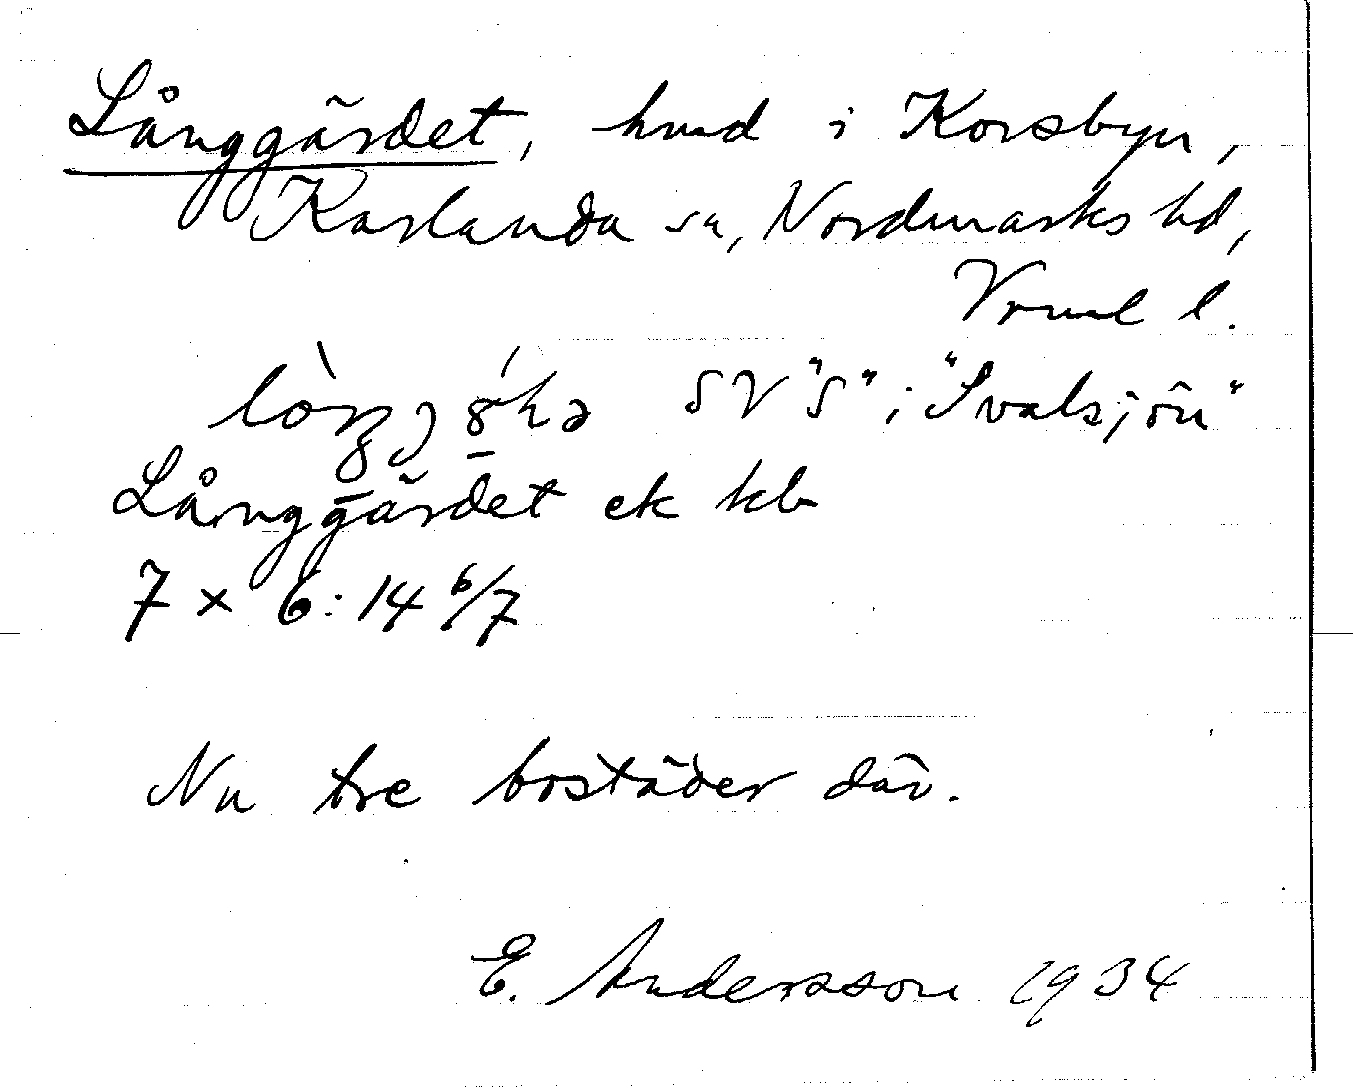 Långgärdet, hmd i Korsbyn,
Karlanda sn, Nordmarks hd,
Vrml l.
SV "S" i "Svalsjön"
Långgärdet ek kb
7 x 6:14 6/7
Nu tre bostäder där.
E. Andersson 1934